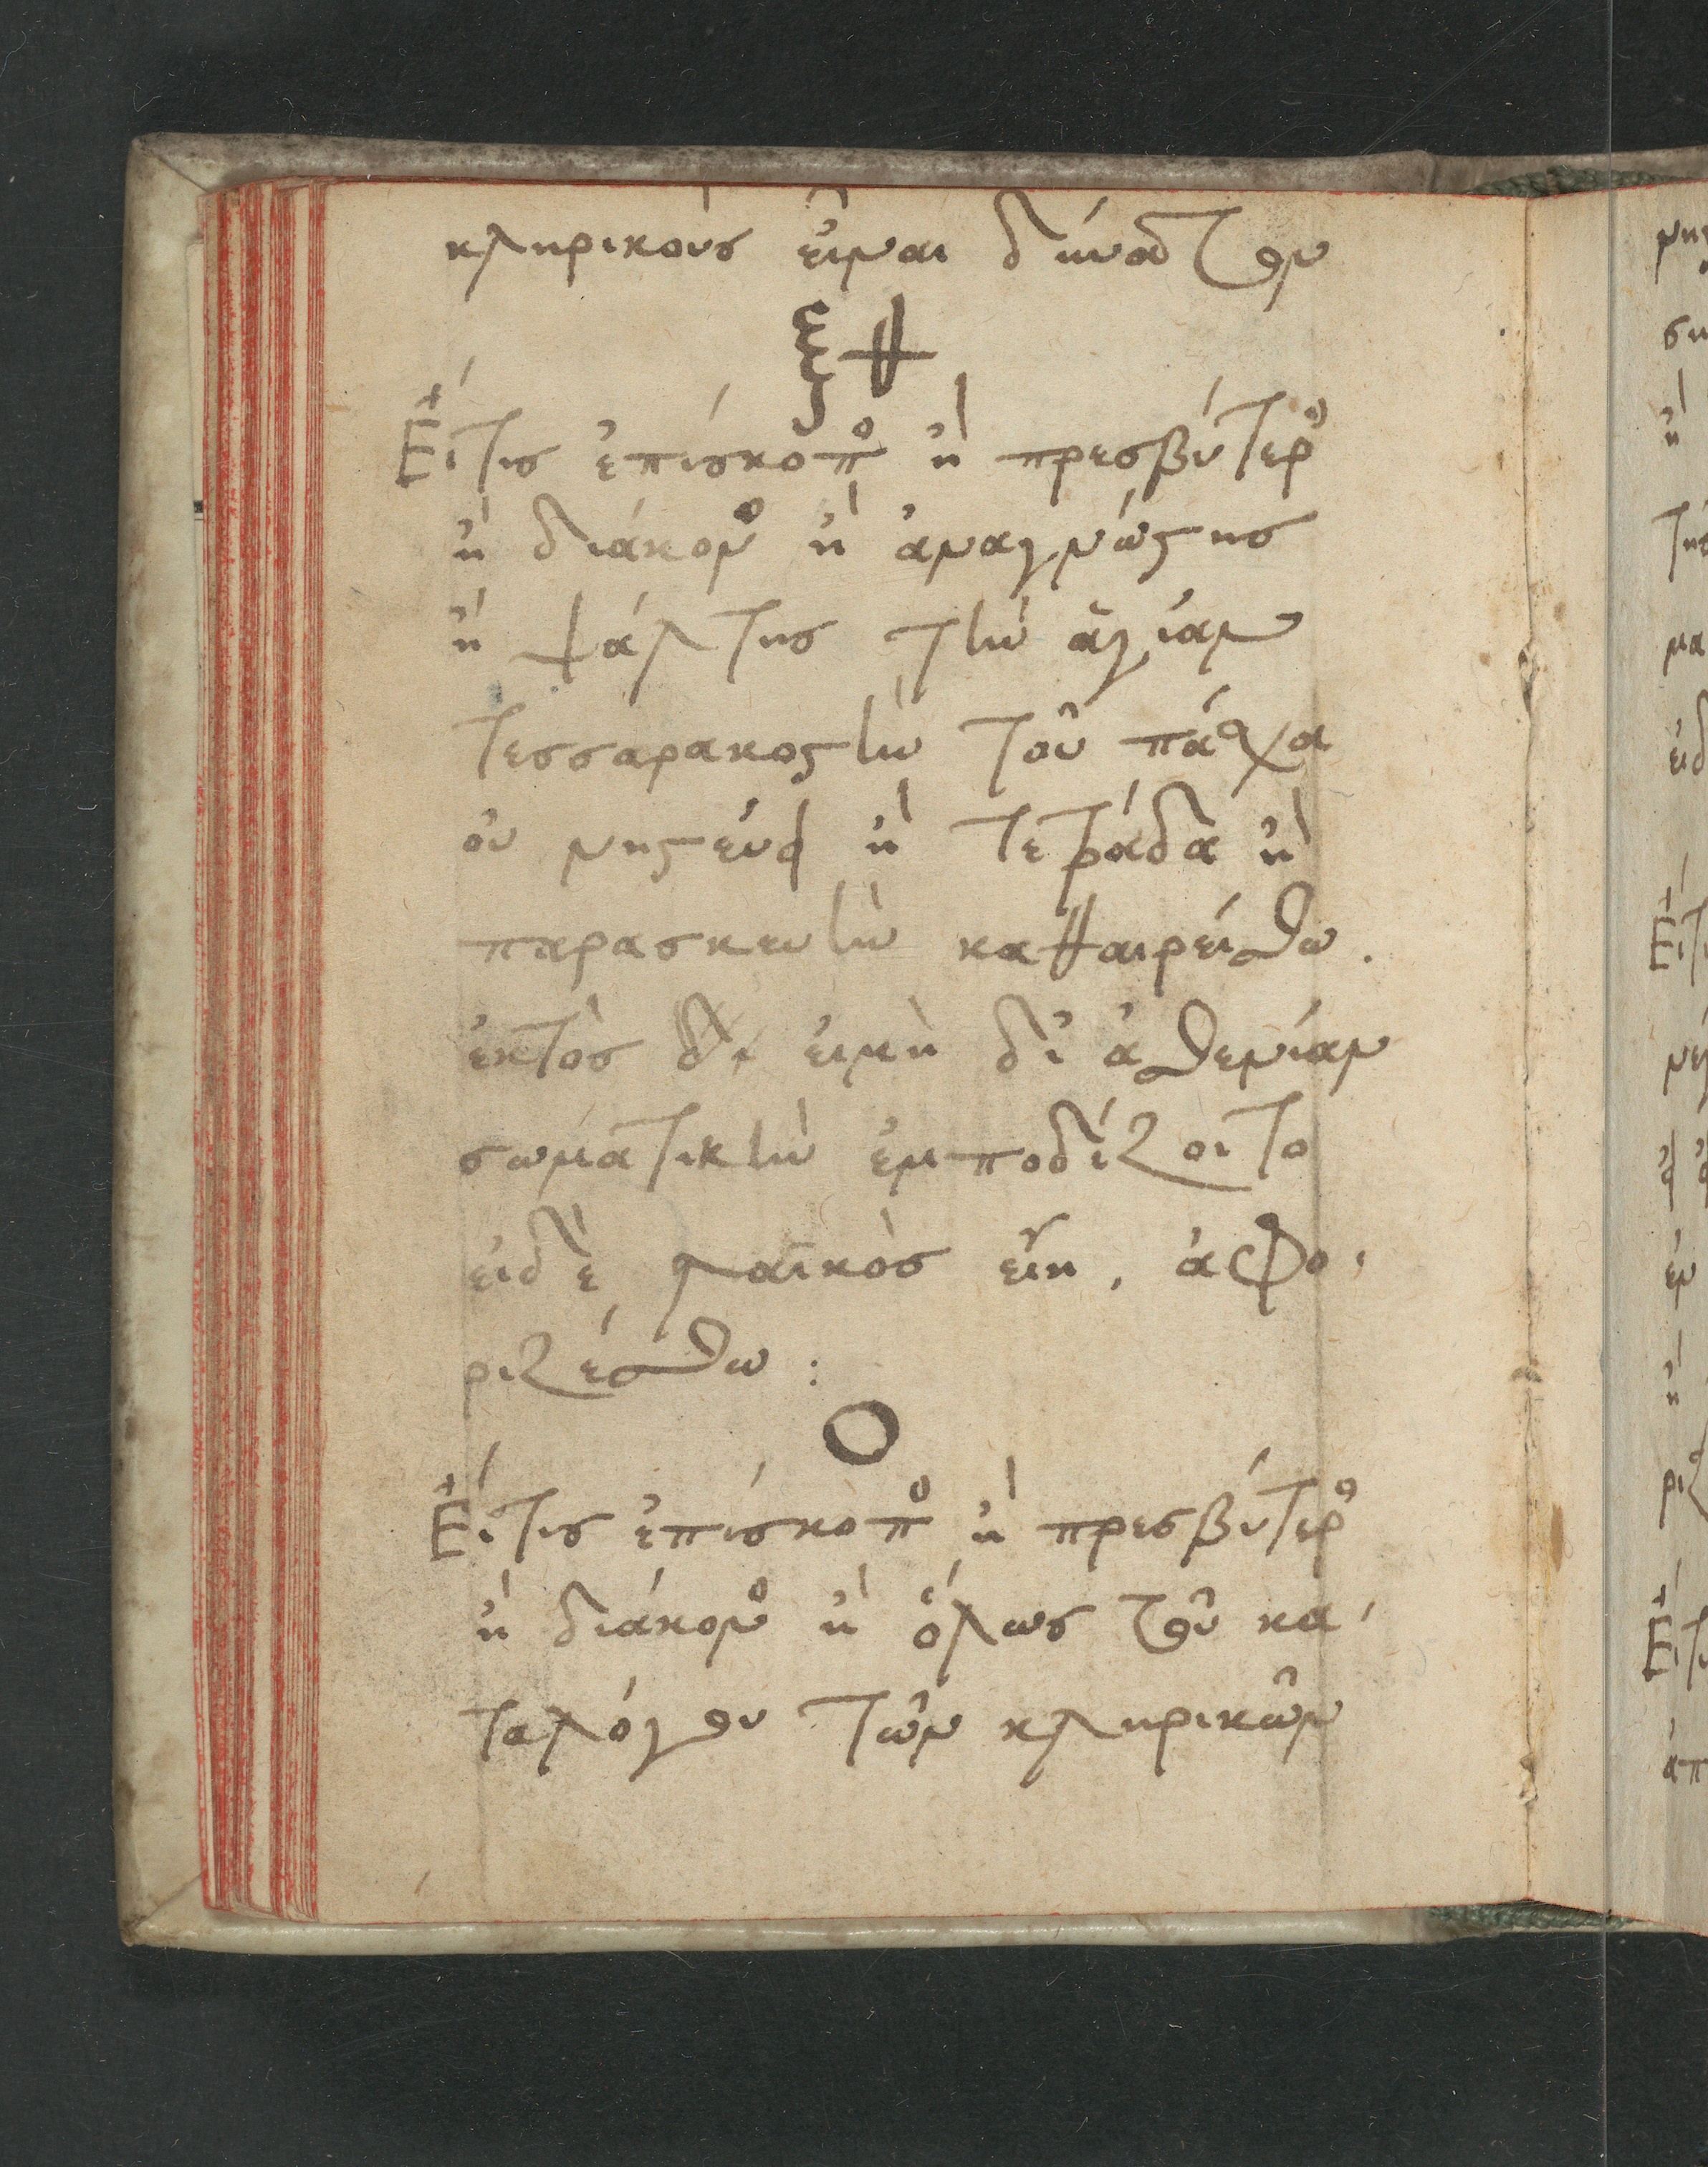 κληρικοὺς εἶναι δυνατὸν
ξθ
Εἴτις ἐπίσκοπος ἢ πρεσβύτερος
ἢ διάκονος ἢ ἀναγνώστης
ἢ ψάλτης τὴν ἁγίαν
τεσσαρακοστὴν τοῦ πάσχα
οὐ νηστεύει ἢ τετράδα ἢ
παρασκευὴν καθαιρείσθω.
ἐκτὸς δὲ εἰμὴ δι' ἀσθενείαν
σωματικὴν ἐμποδίζοιτο
εἰδὲ λαϊκὸς εἴη, ἀφο
ριζέσθω:
Ο
Εἴτις ἐπίσκοπος ἢ πρεσβύτερος
ἢ διάκονος ἢ ὅλως τοῦ κα
ταλόγου τῶν κληρικῶν